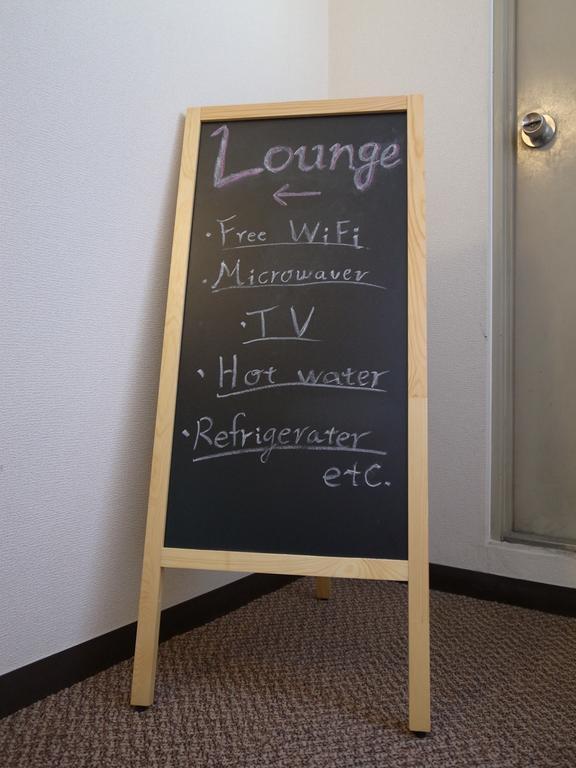 Lounge
←
· Free WiFi
· Microwaver
· TV
· Hot water
· Refrigerater
etc.